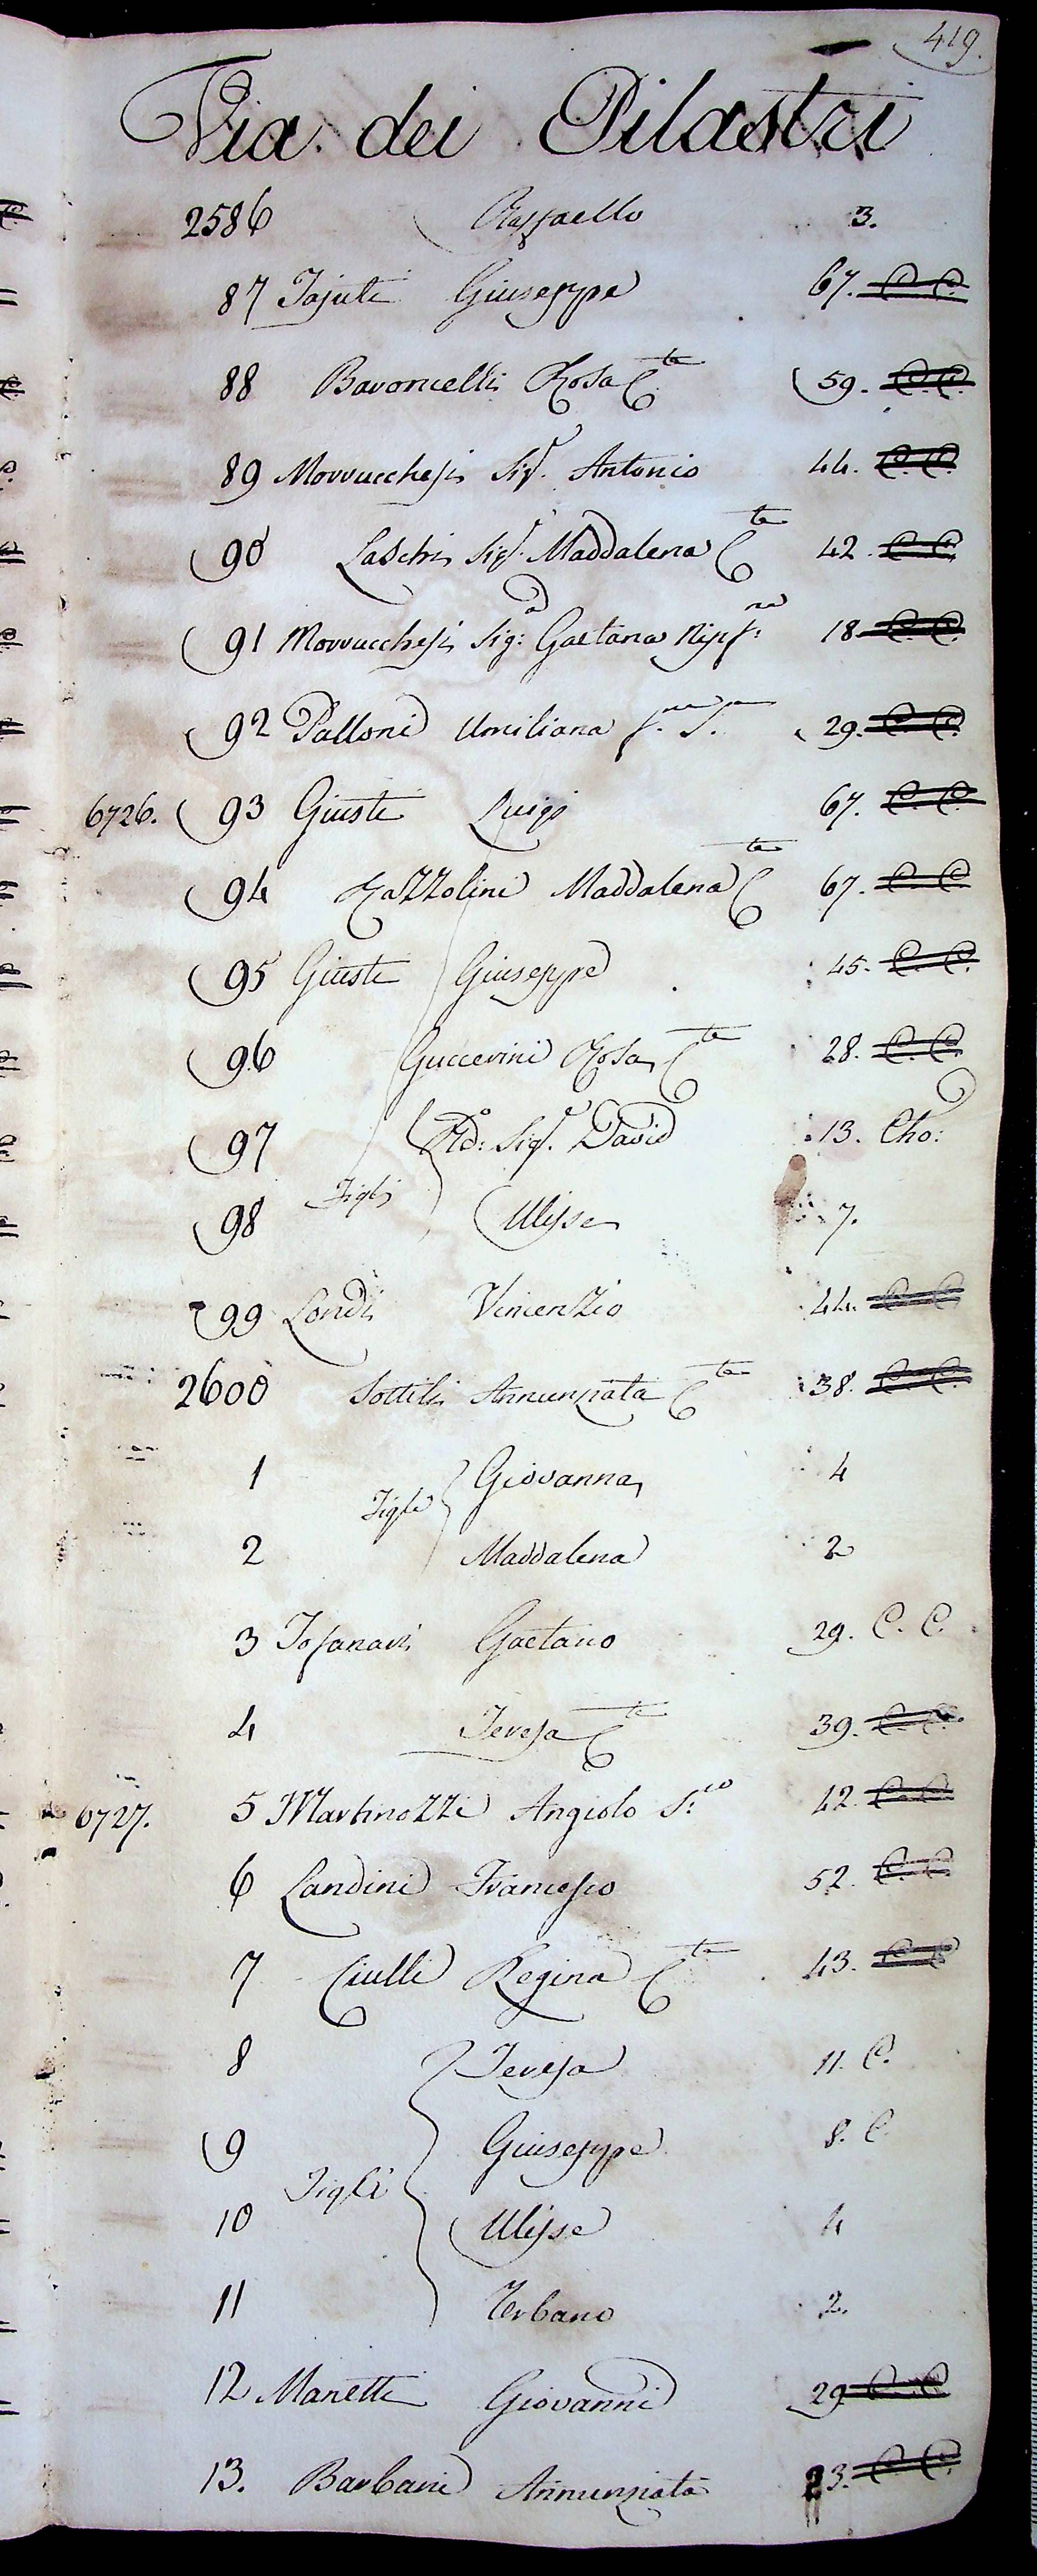 419.
Via dei Pilastri
2586 Raffaello 3.
87 Tajuti Giuseppe 67. C. C.
88 Baroncelli Rosa C.te 59. C. C.
89 Morrucchesi Sig.r Antonio 44. C. C.
90 Laschi Sig.r Maddalena C.te 42. C. C.
91 Morrucchesi Sig:a Gaetana 18 C. C.
92 Palloni Umiliana 29. C. C.
6726. 93 Giusti Luigi 67. C. C.
94 Razzolini Maddalena C.te 67. C. C.
95 Giusti Giuseppe 45. C. C.
96 Guccerini Rosa C.te 28. C. C.
97 Sig.r David 13. Cho:
Figli
98 Ulisse 7.
99 Londi Vincenzio 44. C. C.
2600 Sottili Annunziata C.te 38. C. C.
1 Giovanna 4
Figli
2 Maddalena 2
3 Tofanari Gaetano 29. C. C.
4 Teresa C.te 39. C. C.
6727. 5 Martinozzi Angiolo S:co 42. C. C.
6 Landini Francesco 52. C. C.
7 Ciulli Regina C.te 43. C. C.
8 Teresa 11. C.
9 Giuseppe 8. C.
Figli
10 Ulisse 4
11 Urbano 2.
12 Manetti Giovanni 29 C. C.
13. Barbani Annunziata 23. C. C.